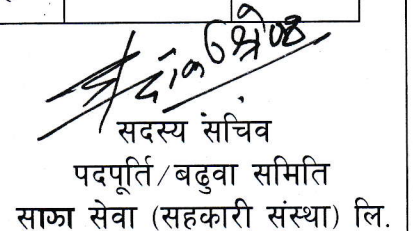 सदस्य सचिव
पदपूर्ति/बढुवा समिति
साका सेवा (सहकारी संस्था) लि.